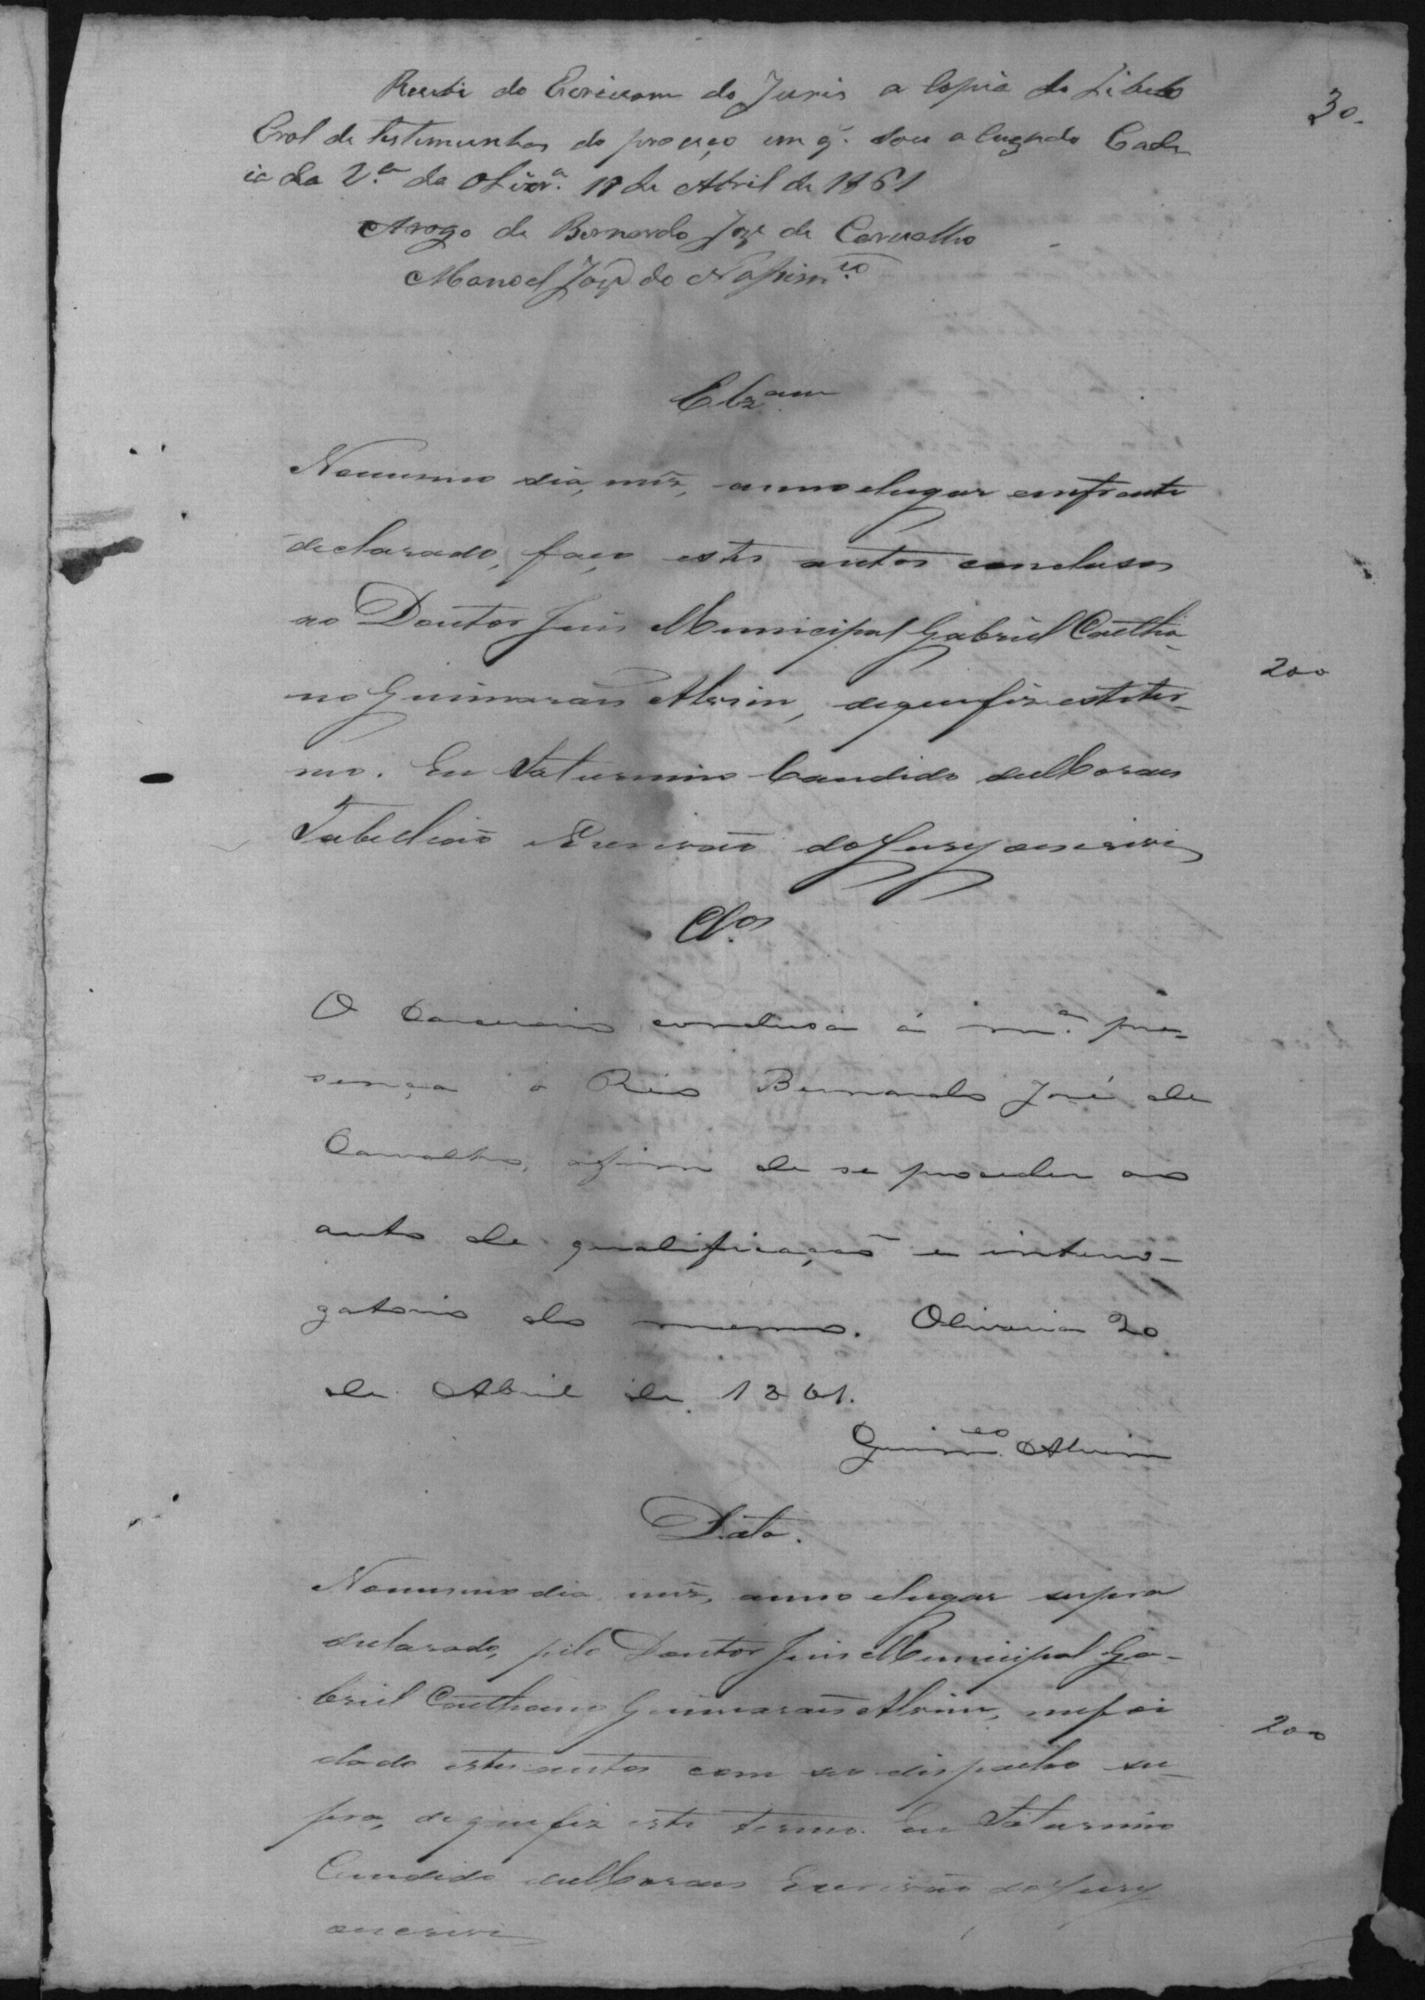 Recebi do Escrivam do Juris a Copia do Libelo
30.
Erol de testemunhas do proceço em q. sou acuzado Cade
ia da V.a da Olivr.a 18 de Abril de 1861
Arogo de Bernardo Joze de Carvalho
Manoel Joze do Nassim.to
Clzam
Nomesmo dia, mês, anno elugar emfrente
declarado, faço estes autos conclusos
ao Doutor Juis Municipal Gabriel Caetha-
200
no Guimarães Alvim, dequefiz estiter-
mo. Eu Saturnino Candido deMoraes
Tabelião eEscrivão doJury oescrivi
Clos
O Carcereiro condusa á m.a pre-
sença o Réo Bernardo José de
Carvalho, afim de se proceder ao
auto de qualificação e interro-
gatorio do mesmo. Oliveira 20
de Abril de 1861.
Guim.es Alvim
Data.
Nomesmo dia, mês, anno elugar supra
declarado, pelo Doutor Juis Municipal Ga-
briel Caethano Guimarães Alvim, mefoi
200
dado estes autos com seo despacho su-
pra, dequefiz este termo. Eu Saturnino
Candido deMoraes Escrivão doJury
oescrivi